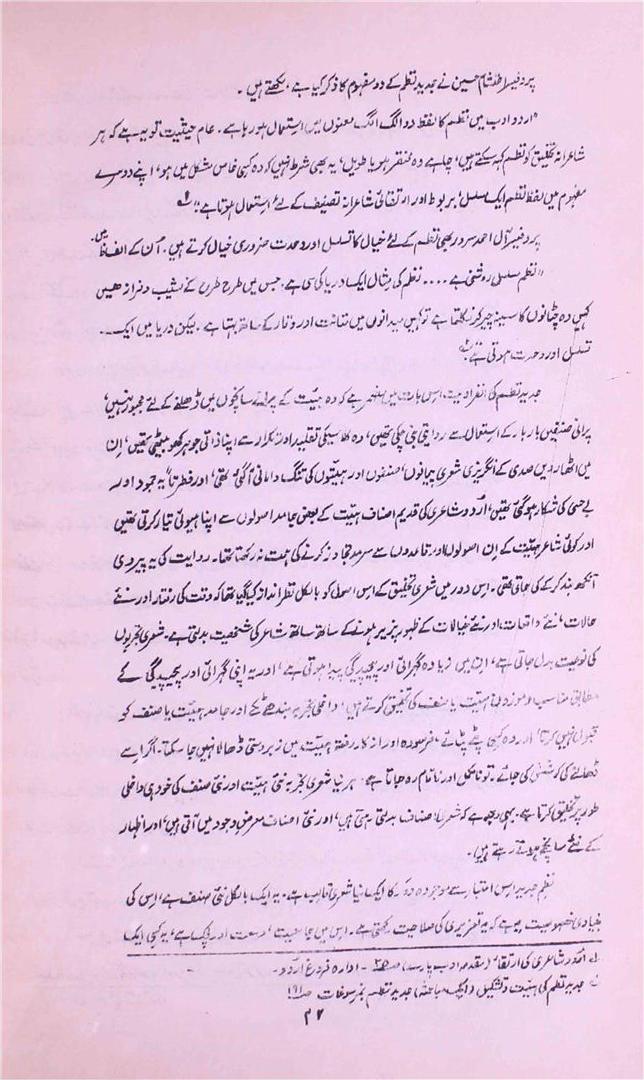 پروفیسر احتشام حسین نے جدید نظم کے دو مفہوم کا ذکر کیا ہے، لکھتے ہیں۔
"اردو ادب میں نظم کا لفظ دو الگ الگ معنوں میں استعمال ہو رہا ہے۔ عام حیثیت تو یہ ہے کہ ہر
شاعرانہ تخلیق کو نظم کہہ سکتے ہیں، چاہے وہ مختصر ہو یا طویل، یہ بھی شرط نہیں کہ وہ کسی خاص شکل میں ہو، اپنے دوسرے
مفہوم میں لفظ نظم ایک مسلسل، مربوط اور ارتقائی شاعرانہ تصنیف کے لئے استعمال ہوتا ہے"۱؎
پروفیسر آل احمد سرور بھی نظم کے لئے خیال کا تسلسل اور وحدت ضروری خیال کرتے ہیں۔ اُن کے الفاظ میں۔
"نظم مسلسل روشنی ہے .... نظم کی مثال ایک دریا کی سی ہے۔ جس میں طرح طرح کے نشیب و فراز ہیں
کہیں وہ چٹانوں کا سینہ چیر کر نکلتا ہے تو کہیں میدانوں میں متانت اور وقار کے ساتھ بہتا ہے۔ لیکن دریا میں ایک
تسلسل اور وحدت ہوتی ہے"۲؎
جدید نظم کی انفرادیت، اس بات میں مضمر ہے کہ وہ ہیئت کے پرانے سانچوں میں ڈھلنے کے لئے مجبور نہیں،
پرانی صنفیں بار بار کے استعمال سے روایتی بن چکی تھیں، وہ کلاسیکی تقلید اور تکرار سے اپنا ذاتی جوہر کھو بیٹھی تھیں، اِن
میں اٹھارویں صدی کے انگریزی شعری پیمانوں، صنفوں اور ہیئتوں کی تنگ دامانی آ گئی تھی، اور فطرتاً یہ جمود اور
بے حسی کی شکار ہو گئی تھیں، اُردو شاعری کی قدیم اصناف ہیئت کے بعض جامد اصولوں سے اپنا ہیولیٰ تیار کرتی تھیں
اور کوئی شاعر ہیئت کے اِن اصولوں اور قاعدوں سے سرِمو تجاوز کرنے کی ہمت نہ رکھتا تھا۔ روایت کی یہ پیروی
آنکھ بند کر کے کی جاتی تھی۔ اس دور میں شعری تخلیق کے اس اصول کو بالکل نظر انداز کیا گیا تھا کہ وقت کی رفتار اور نئے
حالات، نئے واقعات، اور نئے خیالات کے ظہور پذیر ہونے کے ساتھ ساتھ شاعر کی شخصیت بدلتی ہے۔ شعری تجربوں
کی نوعیت بدل جاتی ہے، اِن میں زیادہ گہرائی اور پیچیدگی پیدا ہوتی ہے، اور یہ اپنی گہرائی اور پیچیدگی کے
مطابق مناسب و موزوں ہیئت یا صنف کی تخلیق کرتے ہیں، داخلی تجربہ بندھے ٹکے اور جامد ہیئت یا صنف کو
قبول نہیں کرتا، اور وہ کبھی پٹے پٹائے، فرسودہ اور از کار رفتہ ہیئت میں زبردستی ڈھالا نہیں جا سکتا۔ اگر اسے
ڈھالنے کی کوشش کی جائے، تو نامکمل اور ناتمام رہ جاتا ہے، ہر نیا شعری تجربہ نئی ہیئت اور نئی صنف کی خود ہی داخلی
طور پر تخلیق کرتا ہے۔ یہی وجہ ہے کہ شعری اصناف بدلتی رہتی ہیں، اور نئی اصناف معرضِ وجود میں آتی ہیں، اور اظہار
کے نئے سانچے ہوتے رہتے ہیں۔
نظمِ جدید اس اعتبار سے موجودہ دَور کا ایک نیا شعری قالب ہے۔ یہ ایک بالکل نئی صنف ہے، اِس کی
بنیادی خصوصیت یہ ہے کہ یہ تغیر پذیری کی صلاحیت رکھتی ہے۔ اس میں جامعیت، وسعت اور لچک ہے، یہ کسی ایک
۱؎ اُردو شاعری کی ارتقاء (مقدمہ ادب پارے) صفحہ ۲۵۔ ادارہ فروغِ اُردو۔
۲؎ جدید نظم کی ہیئت و تشکیل (ایک مباحثہ) جدید نظم نمبر سوغات۔ صفحہ ۱۹۱
۲۷